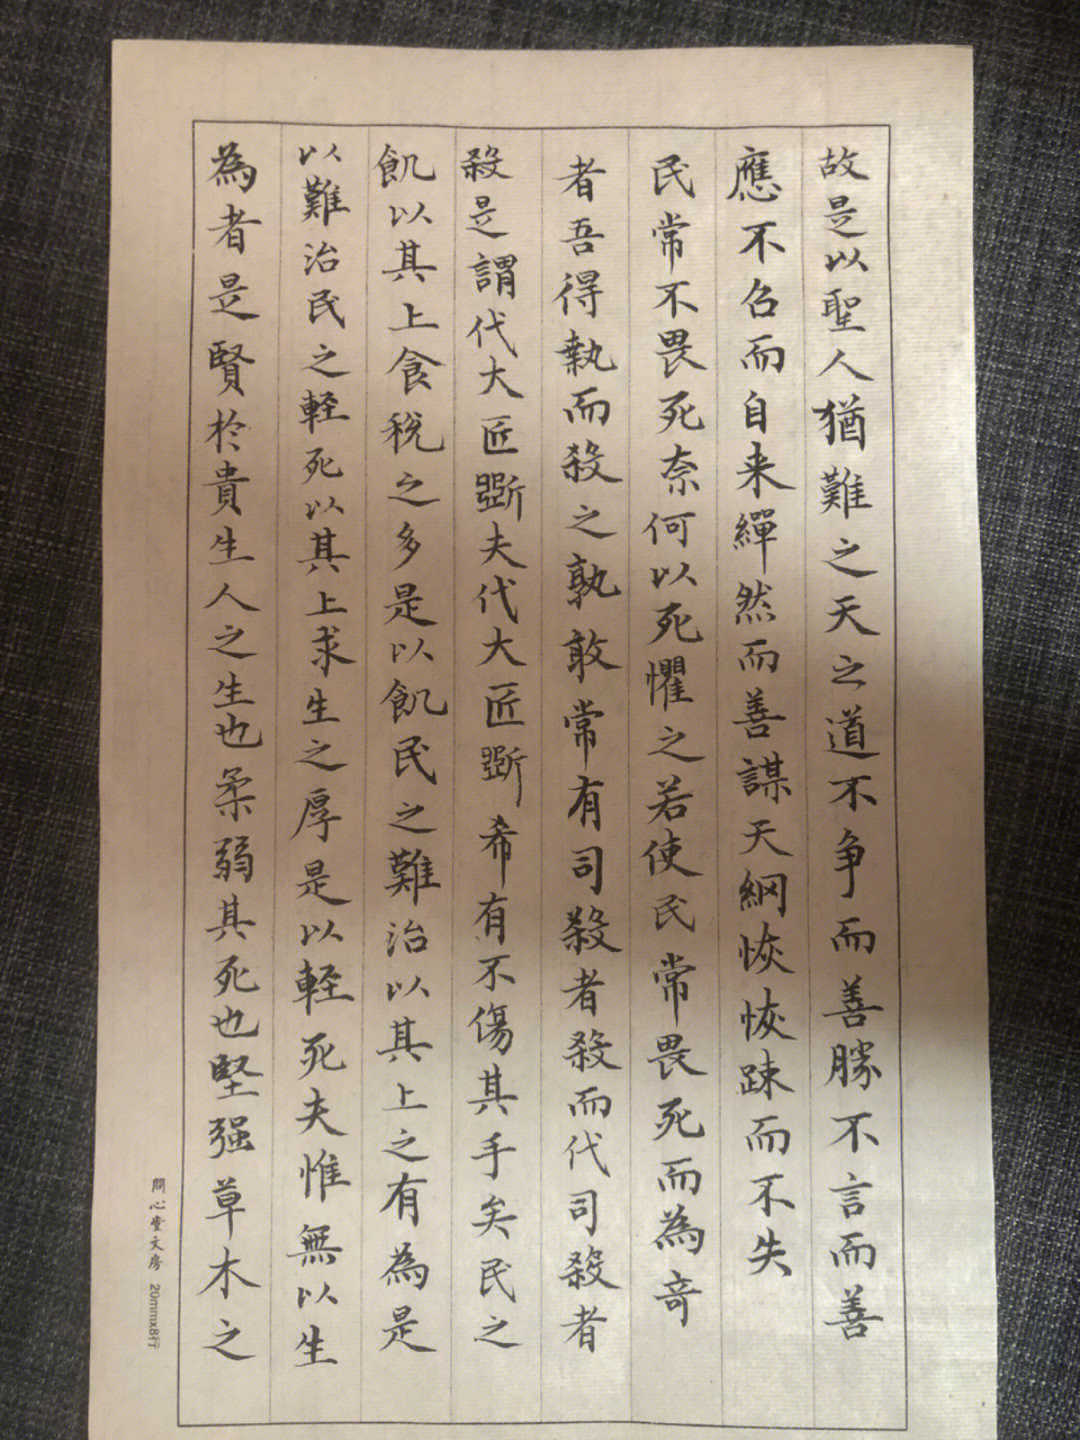 故是以聖人猶難之天之道不争而善勝不言而善
應不召而自来繟然而善謀天網恢恢踈而不失
民常不畏死奈何以死懼之若使民常畏死而為奇
者吾得執而殺之孰敢常有司殺者殺而代司殺者
殺是謂代大匠斲夫代大匠斲希有不傷其手矣民之
飢以其上食稅之多是以飢民之難治以其上之有為是
以難治民之輕死以其上求生之厚是以輕死夫惟無以生
為者是賢於貴生人之生也柔弱其死也堅强草木之
問心堂文房 20mmx8行